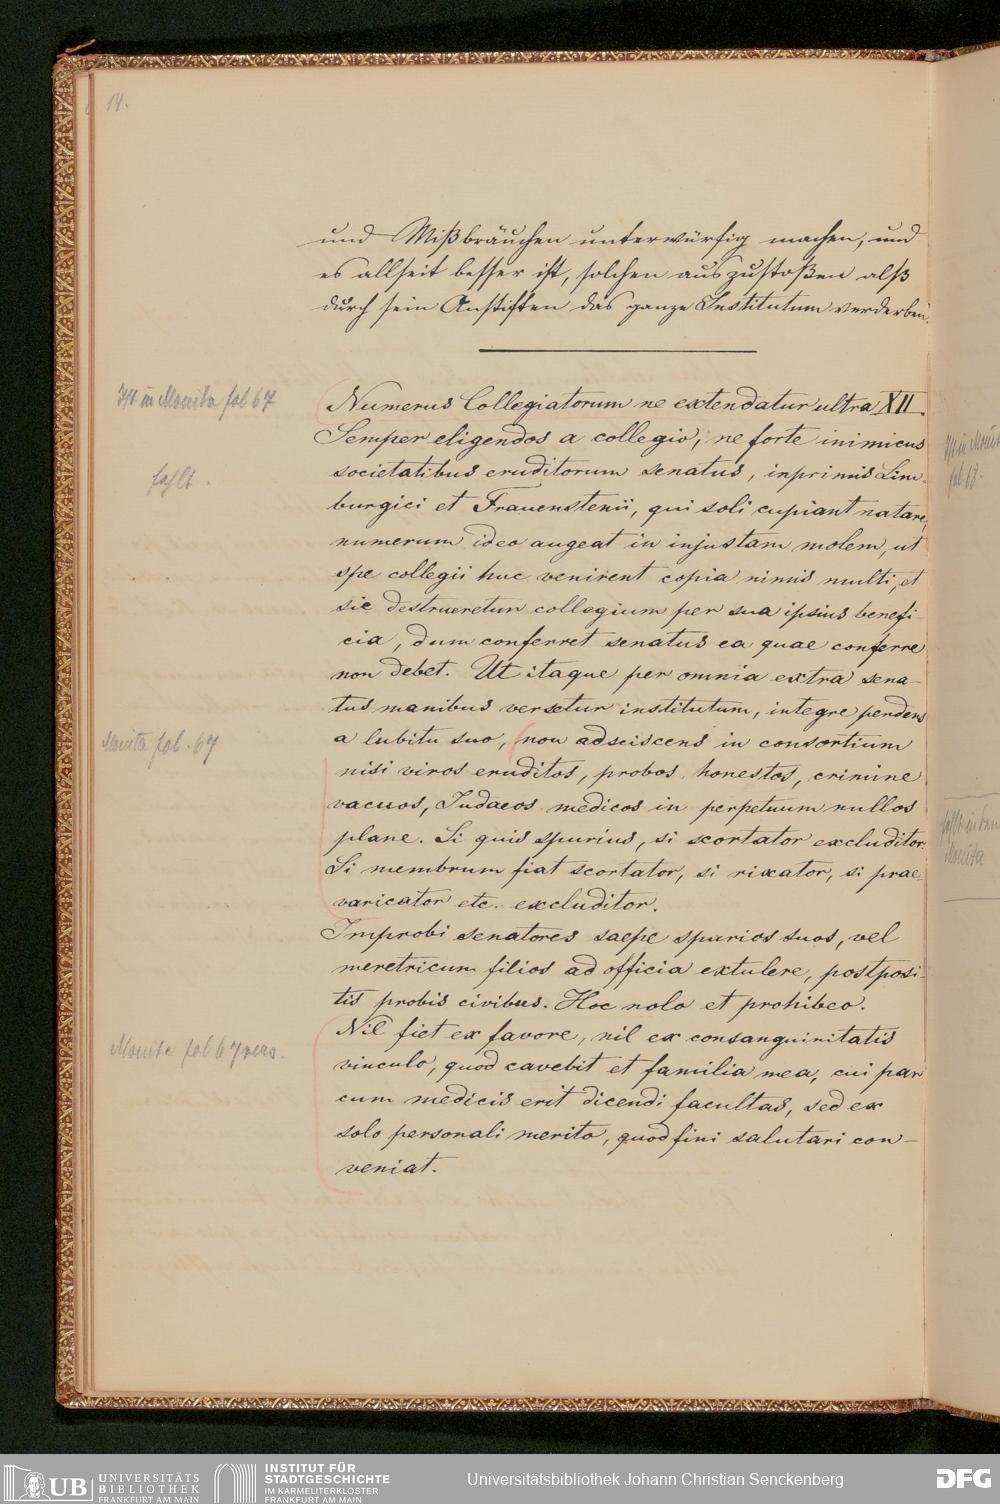 14.
und Mißbräuchen unterwürfig machen, und
es allzeit besser ist, solchen auszustoßen alß
durch sein Anstifften das ganze Institutum verderben.
Ist in Monita fol 67
Numerus Collegiatorum ne extendatur ultra XII.
Semper eligendos a collegio, ne forte inimicus
fehlt.
societatibus eruditorum senatus, inprimis Lim-
burgici et Frauenstenii, qui soli cupiant natare,
numerum ideo augeat in injustam molem, ut
spe collegii huc venirent copia nimis multi, et
sic destrueretur collegium per sua ipsius benefi-
cia, dum conferret senatus ea quae conferre
non debet. Ut itaque per omnia extra sena-
tus manibus versetur institutum, integre pendens
Monita fol. 67
a lubitu suo, non adsciscens in consortium
nisi viros eruditos, probos, honestos, crimine
vacuos, Judaeos medicos in perpetuum nullos
plane. Si quis spurius, si scortator excluditor.
Si membrum fiat scortator, si rixator, si prae-
varicator etc. excluditor.
Improbi senatores saepe spurios suos, vel
meretricum filios ad officia extulere, postposi-
tis probis civibus. Hoc nolo et prohibeo.
Monita fol 67 vers.
Nil fiet ex favore, nil ex consanguinitatis
vinculo, quod cavebit et familia mea, cui par
cum medicis erit dicendi facultas, sed ex
solo personali merito, quod fini salutari con-
veniat.
fol 68.
Monita
UB UNIVERSITÄTS
BIBLIOTHEK
FRANKFURT AM MAIN
INSTITUT FÜR
STADTGESCHICHTE
IM KARMELITERKLOSTER
FRANKFURT AM MAIN
Universitätsbibliothek Johann Christian Senckenberg
DFG